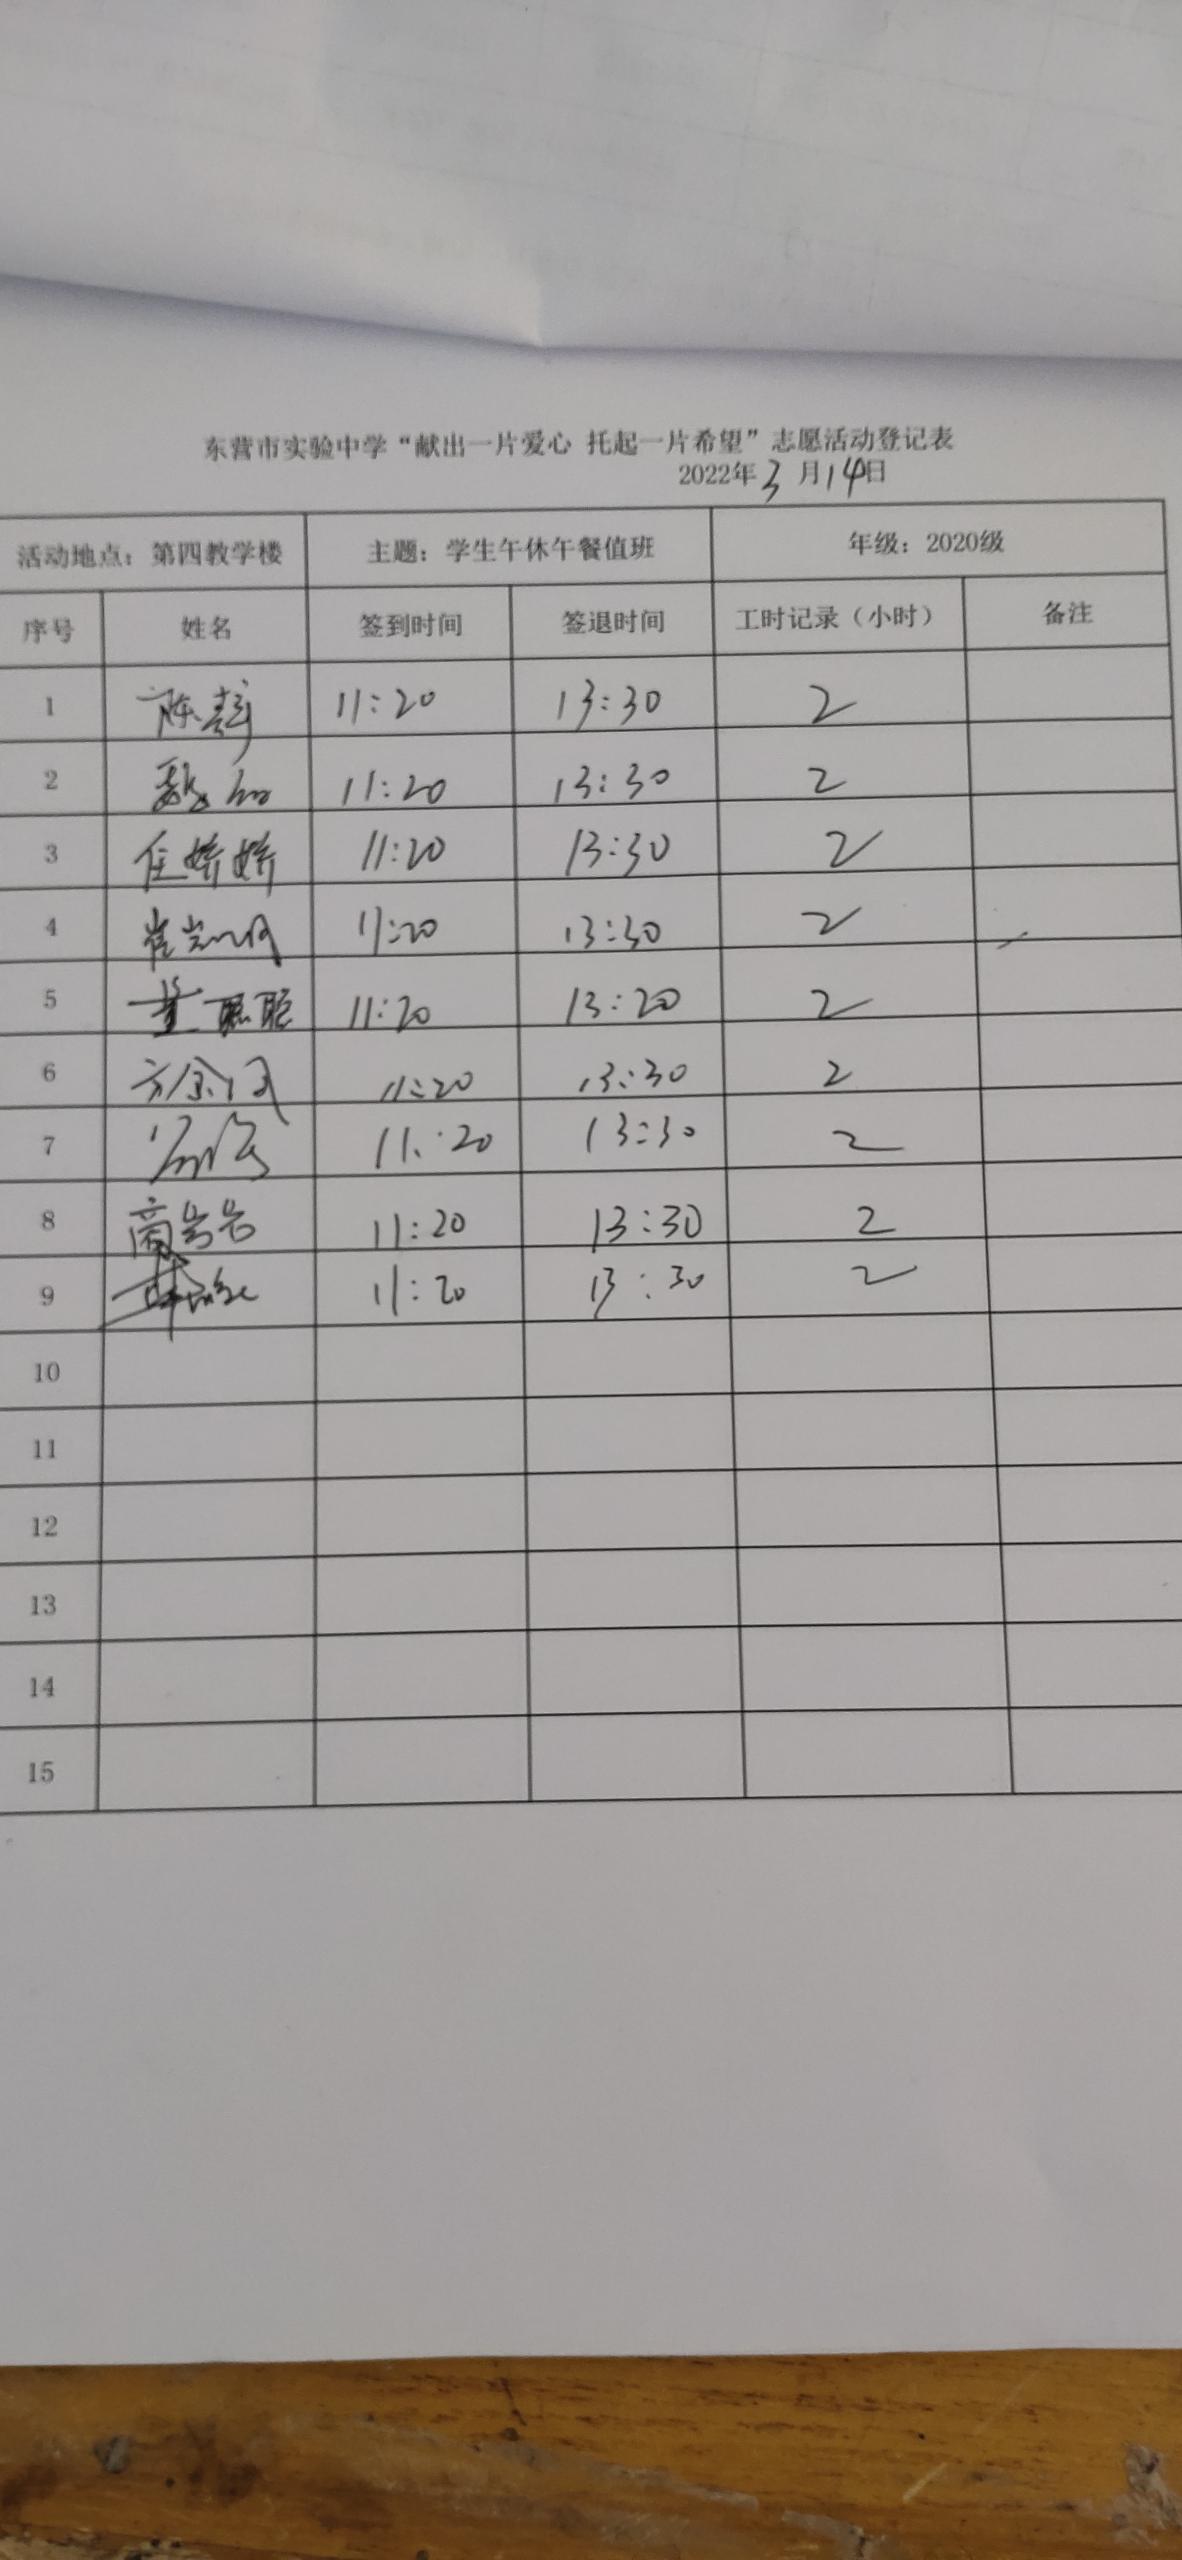 东营市实验中学“献出一片爱心 托起一片希望”志愿活动登记表
2022年3月14日
活动地点：第四教学楼 主题：学生午休午餐值班 年级：2020级
序号 姓名 签到时间 签退时间 工时记录（小时） 备注
1 陈 11:20 13:30 2
2 11:20 13:30 2
3 任娇娇 11:20 13:30 2
4 崔 11:20 13:30 2
5 董聪聪 11:20 13:20 2
6 11:20 13:30 2
7 11:20 13:30 2
8 商岩岩 11:20 13:30 2
9 11:20 13:30 2
10
11
12
13
14
15